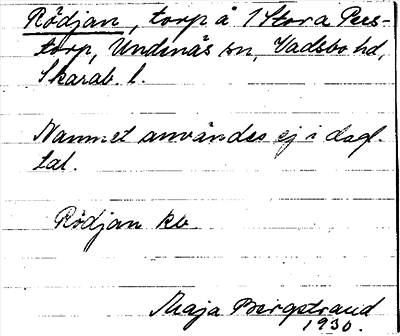 Rödjan, torp å 1 Stora Pers-
torp, Undenäs sn, Vadsbo hd,
Skarab. l.
Namnet användes ej i dagl.
tal.
Rödjan kb
Maja Bergstrand
1930.